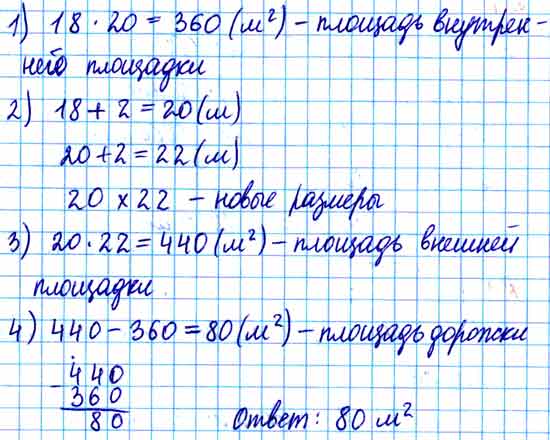 1) 18 · 20 = 360 (м²) – площадь внутрен-
ней площадки
2) 18 + 2 = 20 (м)
20 + 2 = 22 (м)
20 x 22 – новые размеры
3) 20 · 22 = 440 (м²) – площадь внешней
площадки
4) 440 – 360 = 80 (м²) – площадь дорожки
440
- 360
80
Ответ: 80 м²